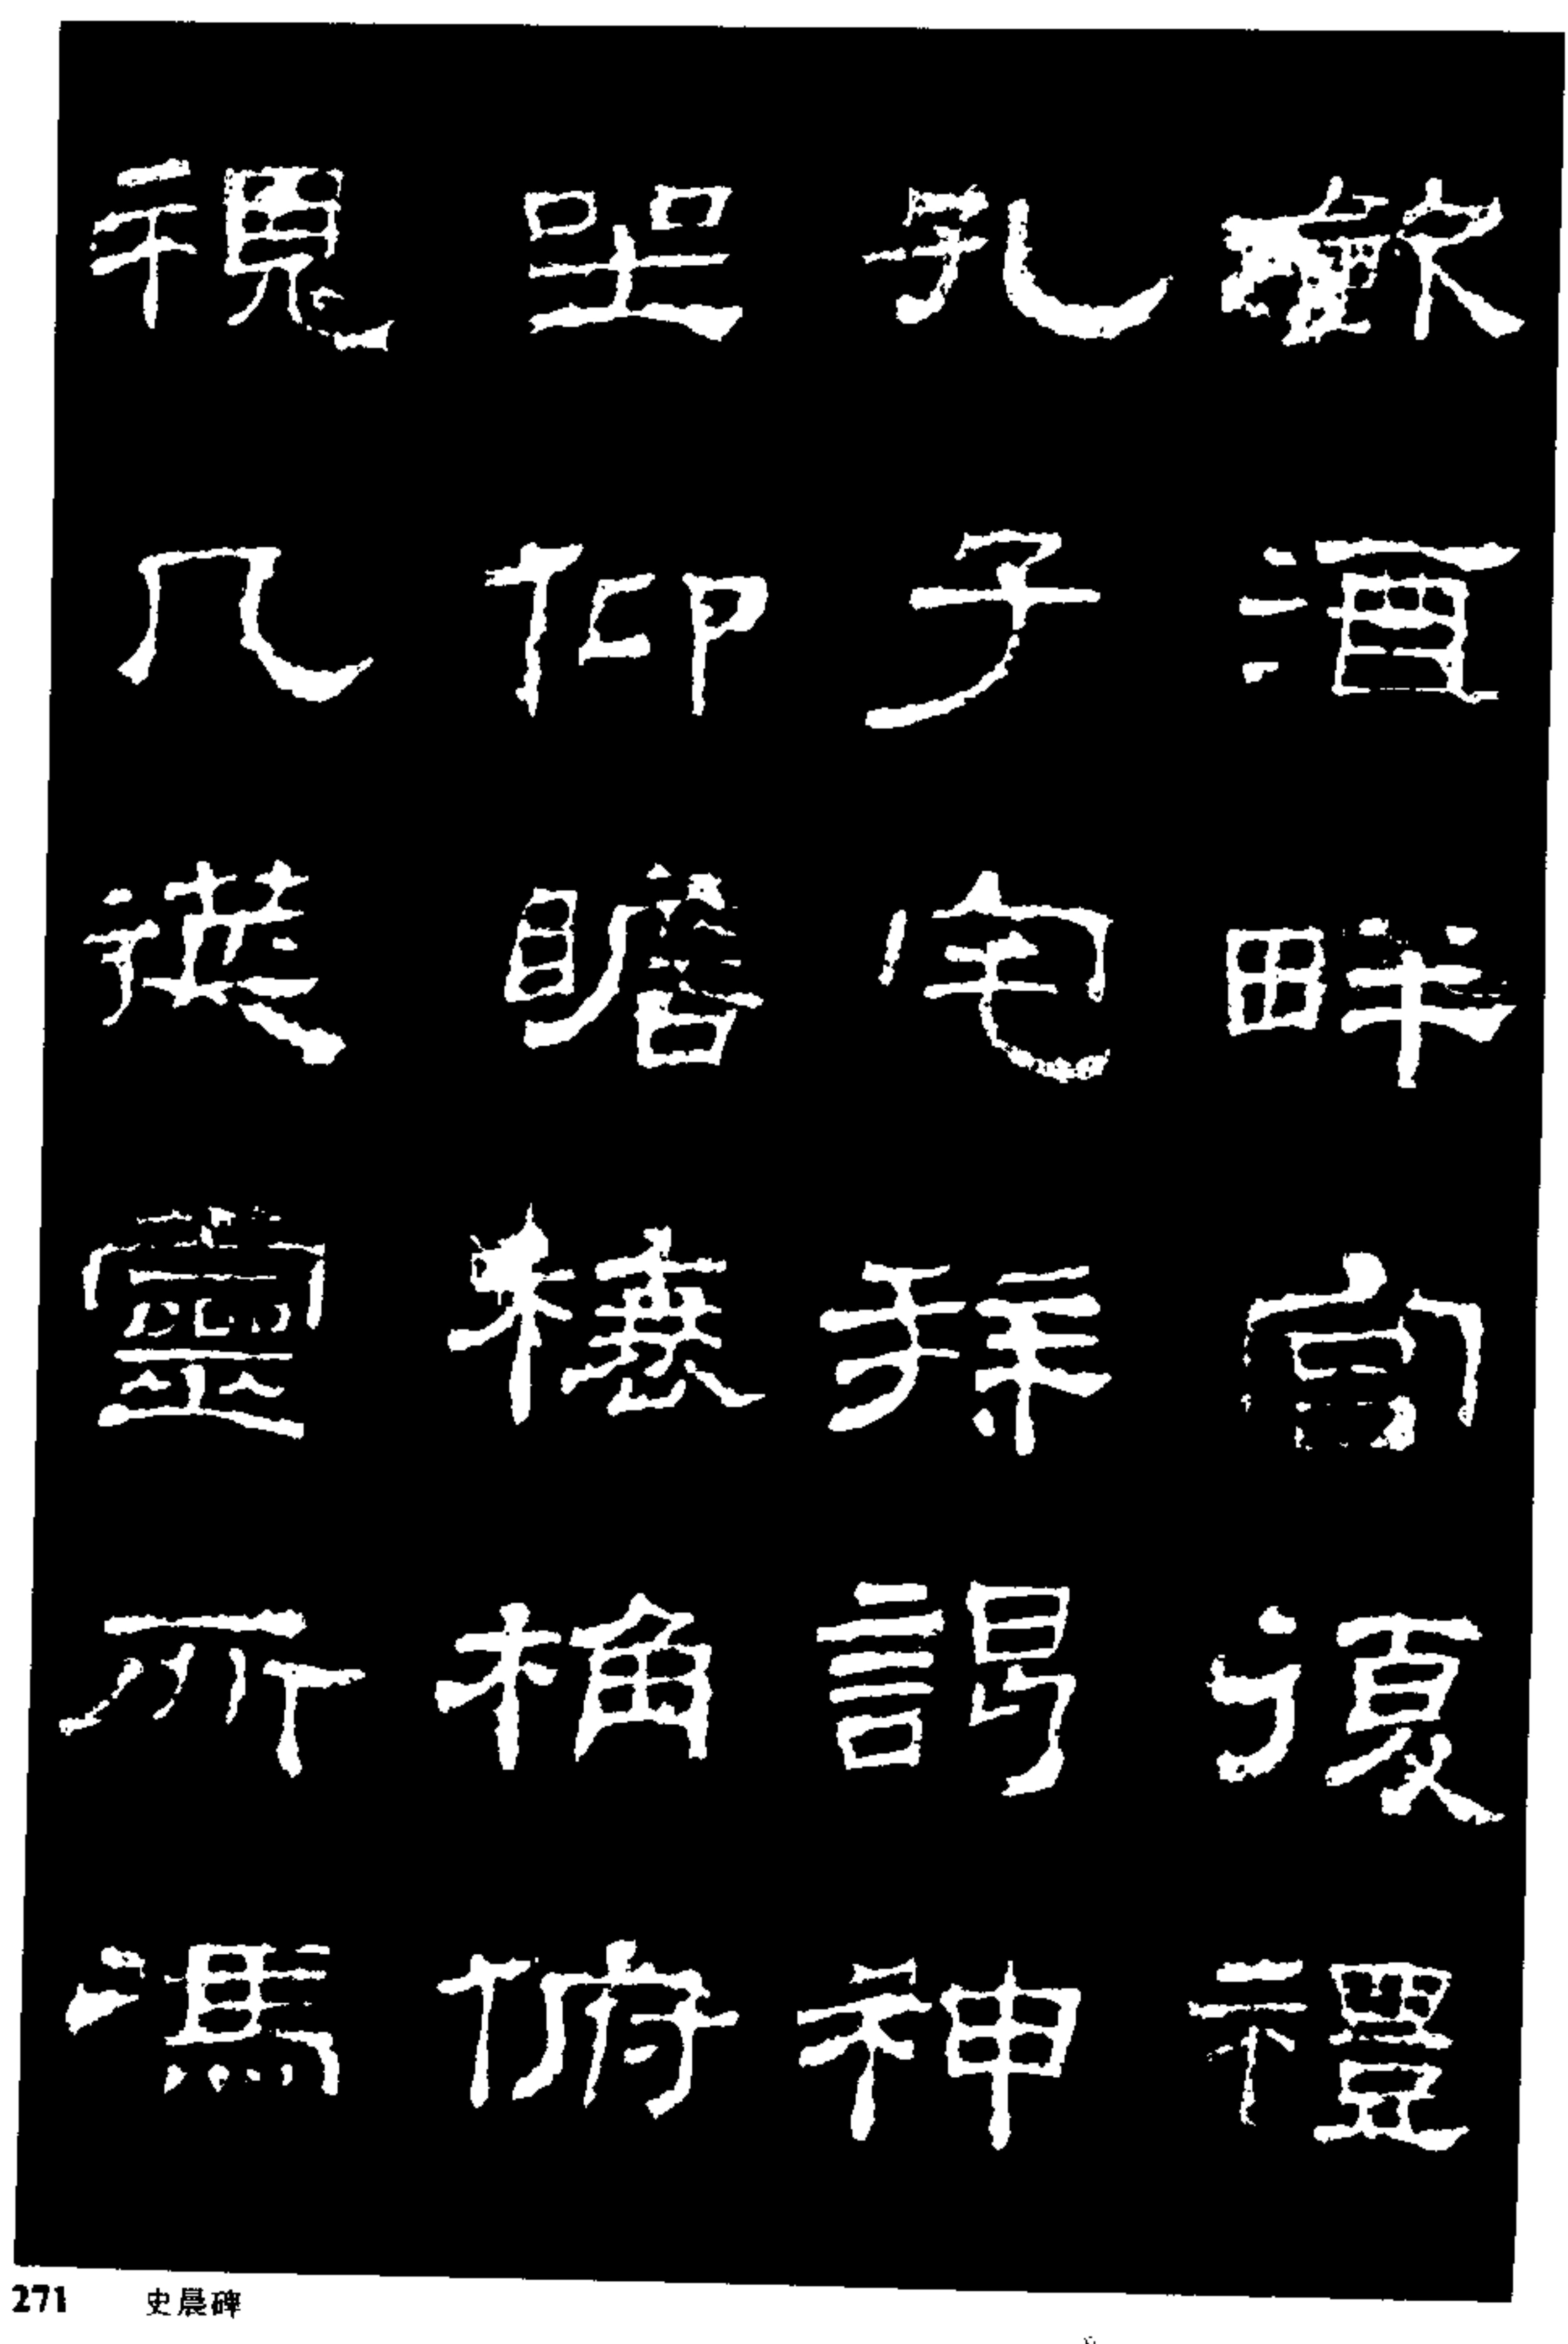 飲酒畔宮復禮
孔子宅拜謁神
坐仰瞻榱桷俯
視几筵靈所馮
271 史晨碑